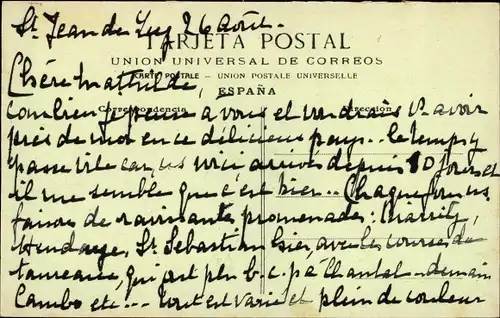 St Jean de Luz 26 Août.
TARJETA POSTAL
UNION UNIVERSAL DE CORREOS
CARTE POSTALE — UNION POSTALE UNIVERSELLE
ESPAÑA
Chère Mathilde,
Correspondencia
Dirección
Combien je pense à vous et voudrais vs avoir
près de moi en ce délicieux pays.. le temps y
passe vite car, ns voici arrivés depuis 10 jours et
il me semble que c'est hier.. Chaque jour ns
faisons de ravissantes promenades: Biarritz,
Hendaye, St Sébastian hier, avec les courses de
taureaux, qui ont plu b.c.p à Chantal - demain
Cambo etc... tout est varié et plein de couleur